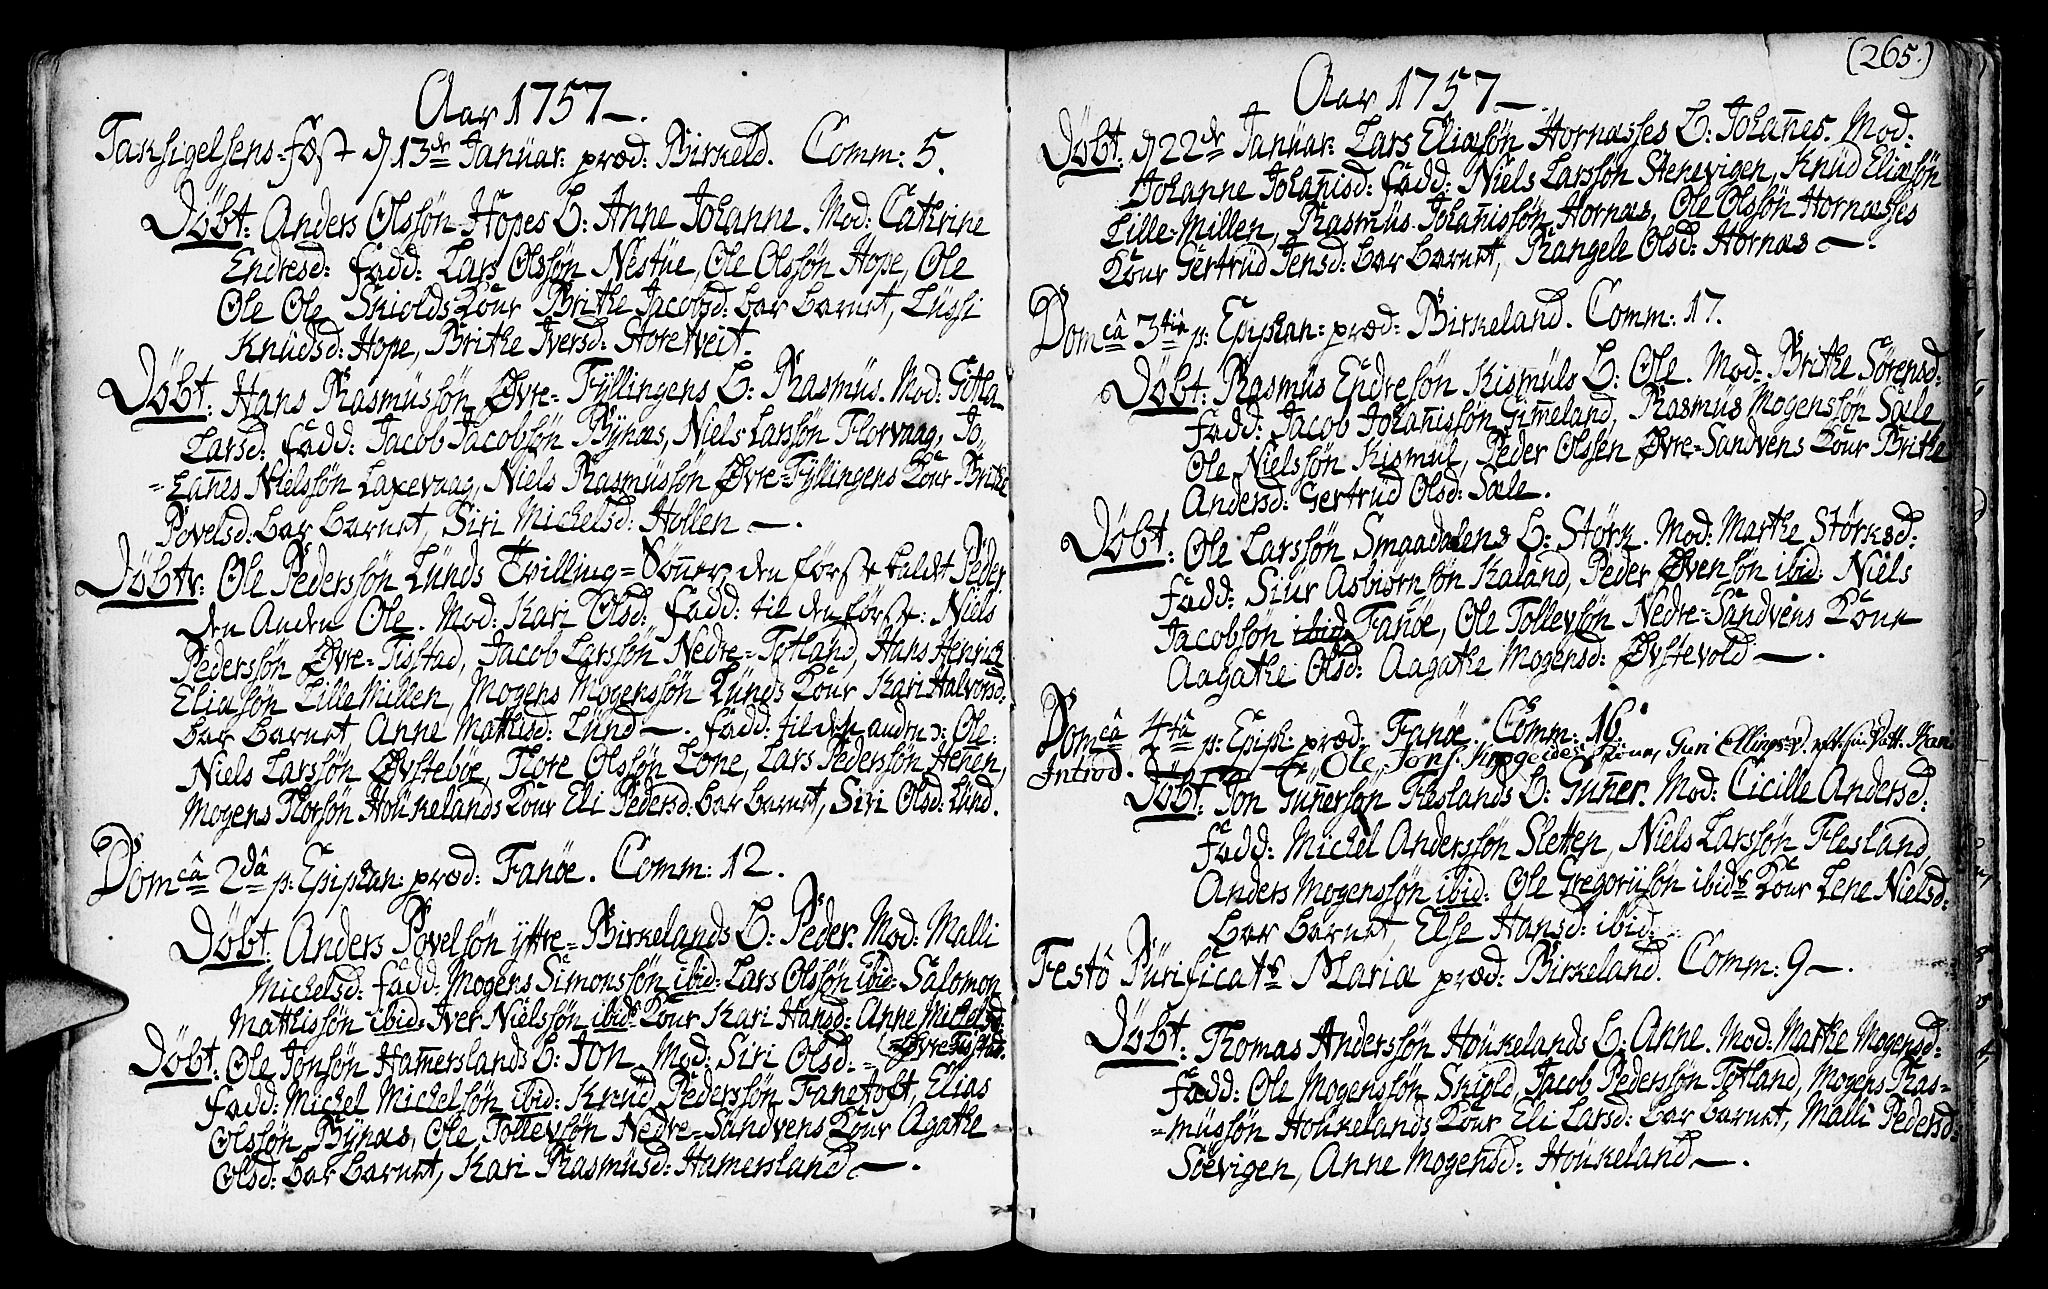 Aar 1757.
Taksigelsens-fæst d 13de Januar: præd: Birkeld. Comm: 5.
Döbt: Anders Olssön Hopes B: Anne Johanne. Mod: Cathrine
Endresd: fadd: Lars Olssön Nestüe, Ole Olssön Hope, Ole
Ole Ole Skiolds Kone Brithe Jacobsd: bar barnet, Lussi
Knüdsd: Hope, Brithe Iversd: Storetveit.
Döbt: Hans Rasmüssön Øvre-Fyllingens B: Rasmüs. Mod: Gitla
Larsd: fadd: Jacob Jacobsön Bÿnæs, Niels Larssön Florvaag, Jo
=hañes Nielssön Laxevaag, Niels Rasmüssön Øvre-Fyllingens Kone Brithe
Povelsd: bar barnet, Siri Michelsd: Hollen.
Döbte: Ole Pederssön Lünds Tvilling=Sönner, den förste kaldt Peder
den Anden Ole. Mod: Kari Olsd: fadd: til den förste: Niels
Pederssön Øvre-Tistad, Jacob Larssön Nedre-Totland, Hans Henrich
Eliasön Lille Millen, Mogens Mogenssön Lünds Kone Kari Halvorsd:
bar barnet, Anne Mathisd: Lünd. fadd: til den anden: Ole:
Niels Larssön Øvsteböe, Thore Olssön Lone, Lars Pederssön Helien,
Mogens Thorsön Houkelands Kone Eli Pedersd: bar barnet, Siri Olsd: Lünd.
Domcâ 2dâ p: Epiphan: præd: Fanöe. Comm: 12.
Döbt: Anders Povelsön ÿttre-Birkelands B: Peder. Mod: Malli
Michelsd: fadd: Mogens Simonssön ibid: Lars Olssön ibid: Salomon
Mathissön ibid: Iver Nielssön ibids Kone Kari Hansd: Anne Michelsd:
Øvre-Tistad.
Döbt: Ole Jonsön Hamerslands B: Jon Mod: Siri Olsd:
fadd: Michel Michelsön ibid: Knüd Pederssön Fanetoft, Elias
Olssön Bÿnæs, Ole Tollevsön Nedre-Sandvens Kone Agathe
Olsd: bar barnet, Kari Rasmüsd: Hamersland.
(265.)
Aar 1757
Döbt: d 22de Januar: Lars Eliasön Hornæsses B: Johañes. Mod:
Johanne Johañisd: fadd: Niels Larssön Stenevigen, Knüd Eliasön
Lille-Millen, Rasmüs Johañissön Hornæs, Ole Olssön Hornæsses
Kone Gertrüd Jensd: bar barnet, Rangele Olsd: Hornæs.
Domcâ 3tia p: Epiphan: præd: Birkeland. Comm: 17.
Döbt: Rasmüs Endresön Kismüls B: Ole. Mod: Brithe Sörensd:
fadd: Jacob Johañissön Gimeland, Rasmüs Mogenssön Sæle,
Ole Nielssön Kismül, Peder Olssen Øvre-Sandvens Kone Brithe
Andersd: Gertrüd Olsd: Sæle.
Döbt: Ole Larssön Smaadalens B: Störk. Mod: Marthe Störksd:
fadd: Siur Asbiörnsön Kaland, Peder Øvensön ibid: Niels
Jacobsön ibid: Fanöe, Ole Tollevsön Nedre-Sandvens Kone
Aagathe Olsd: Aagathe Mogensd: Øvstevold.
Domcâ 4tâ p: Epiph: præd: Fanöe. Comm: 16.
Introd. Ole Jons: Kone, Guri Ellingsd.
Döbt: Jon Güñersön Fleslands B: Güñer. Mod: Cicille Andersd:
fadd: Michel Anderssön Sletten, Niels Larssön Flesland,
Anders Mogenssön ibid: Ole Gregoriisön ibids Kone Lene Nielsd:
bar barnet, Else Hansd: ibid:
Festô Pürificats Mariæ præd: Birkeland. Comm: 9.
Döbt: Thomas Anderssön Houkelands B: Anne. Mod: Marthe Mogensd:
fadd: Ole Mogenssön Skiold, Jacob Pederssön Totland, Mogens Ras=
=müssön Houkelands Kone Eli Larsd: bar barnet, Malli Pedersd:
Söevigen, Anne Mogensd: Houkeland.